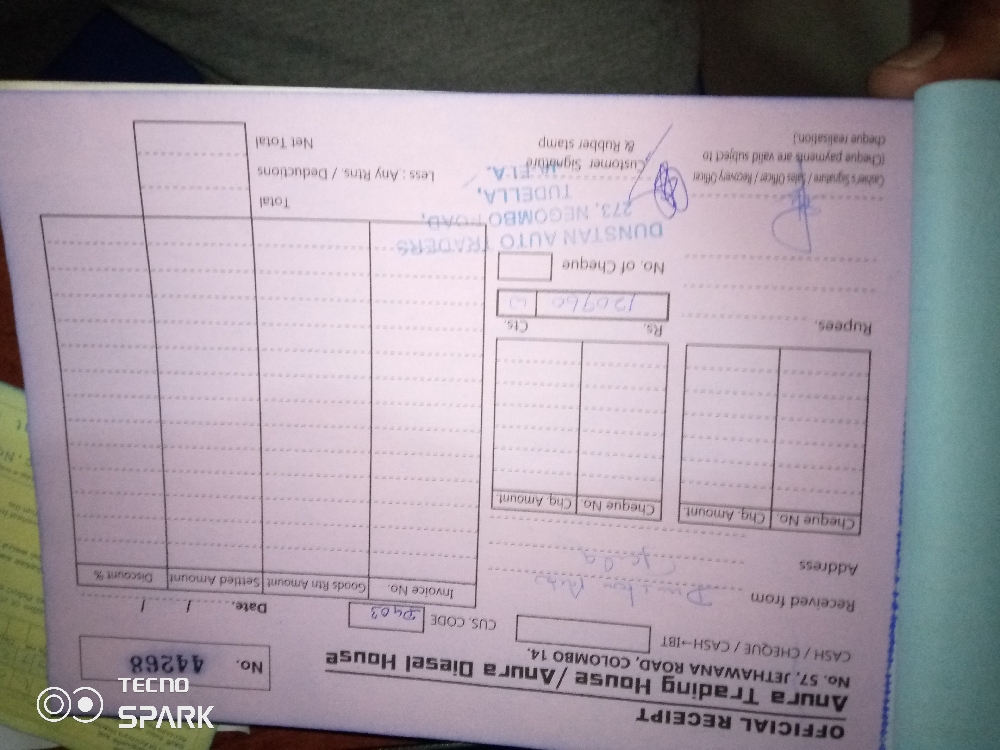 OFFICIAL RECEIPT
Anura Trading House / Anura Diesel House
No. 57, JETHAWANA ROAD, COLOMBO 14.
No. 44268
CASH / CHEQUE / CASH→IBT
CUS. CODE D403
Date. / /
Received from
Address
Cheque No. Chq. Amount
Cheque No. Chq. Amount
Invoice No. Goods Rtn Amount Settled Amount Discount %
Rupees.
Rs. Cts.
120960
No. of Cheque
DUNSTAN AUTO TRADERS
273, NEGOMBO ROAD,
TUDELLA,
JA-ELA.
Total
Less : Any Rtns. / Deductions
Net Total
Cashier's Signature / Sales Officer / Recovery Officer
(Cheque payments are valid subject to
cheque realisation)
Customer Signature
& Rubber stamp
TECNO
SPARK